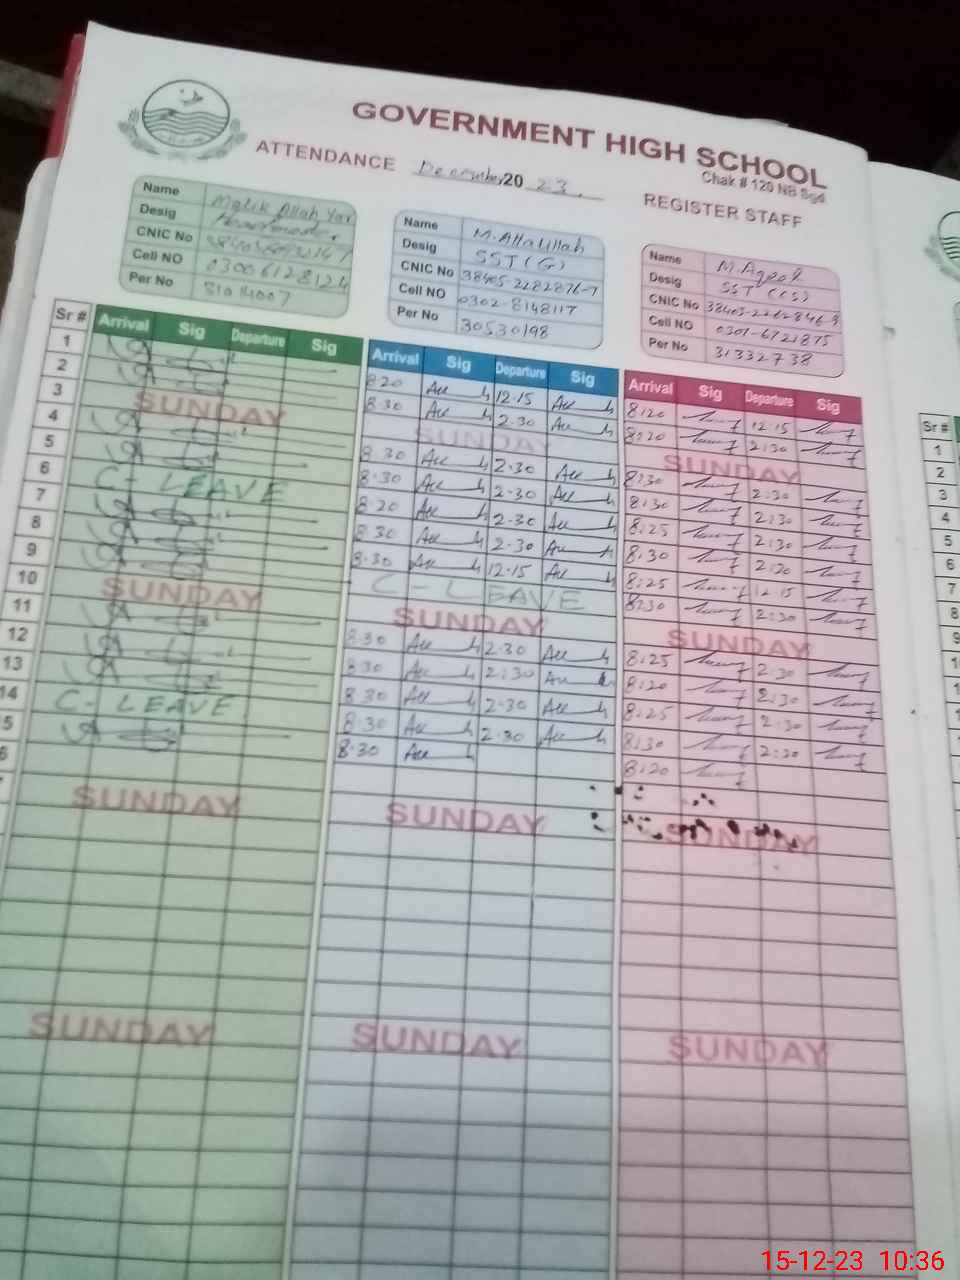 GOVERNMENT HIGH SCHOOL
Chak # 120 NB Sgd
ATTENDANCE December 20 23 REGISTER STAFF
Name Malik Allah Yar
Desig
CNIC No
Cell NO 0300 6128124
Per No 31014007
Name M. Attaullah
Desig SST (G)
CNIC No 38405-2282876-7
Cell NO 0302-8148117
Per No 30530198
Name M. Aqeel
Desig SST (CS)
CNIC No 38405-2262846-9
Cell NO 0301-6721875
Per No 31332738
Sr # Arrival Sig Departure Sig
Arrival Sig Departure Sig
Arrival Sig Departure Sig
Sr #
1 8:20 12.15 8:20 12:15
2 8.30 2.30 8:20 2:30
3 SUNDAY SUNDAY SUNDAY
4 8.30 2.30 8:30 2:30
5 8.30 2.30 8:30 2:30
6 C-LEAVE 8.20 2.30 8:25 2:30
7 8.30 2.30 8:30 2:20
8 8.30 12.15 8:25 12:15
9 C-LEAVE 8:30 2:30
10 SUNDAY SUNDAY SUNDAY
11 8.30 2.30 8:25 2:30
12 8.30 2:30 8:20 2:30
13 8.30 2.30 8:25 2:30
14 C-LEAVE 8.30 2.30 8:30 2:30
5 8.30 8:20
6
SUNDAY SUNDAY SUNDAY
SUNDAY SUNDAY SUNDAY
1
2
3
4
5
6
7
8
9
15-12-23 10:36